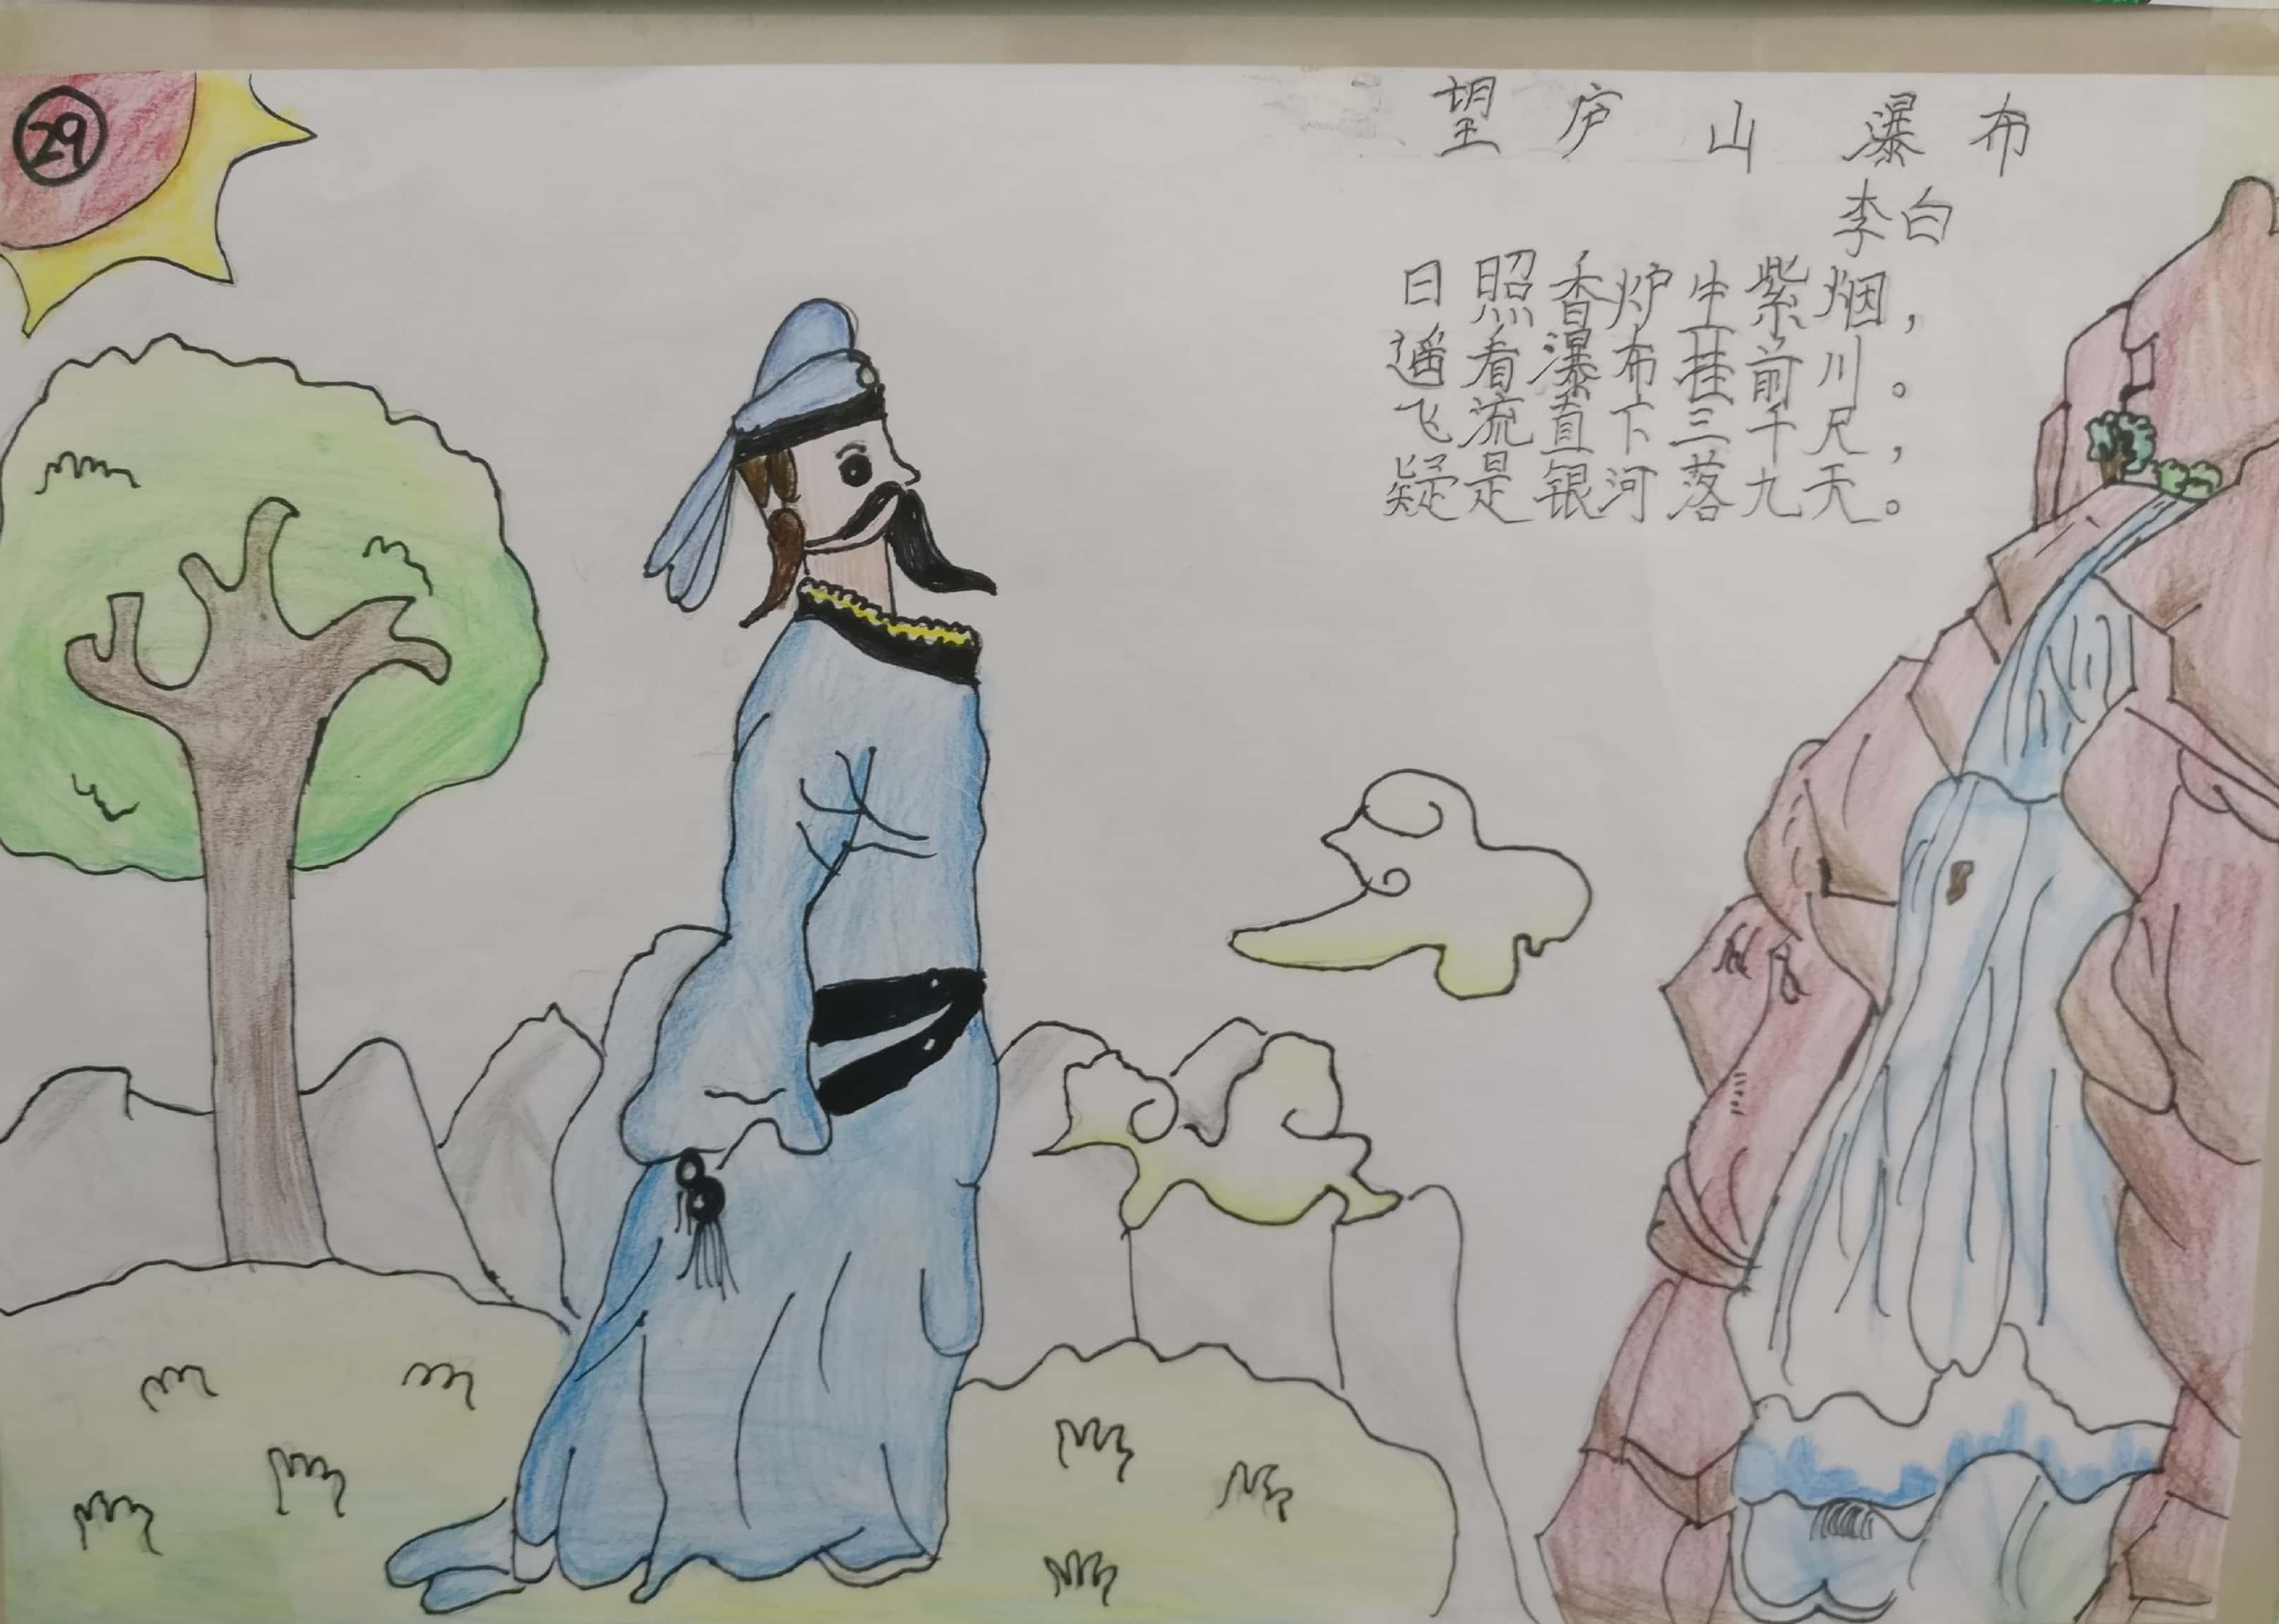 29
望庐山瀑布
李白
日照香炉生紫烟，
遥看瀑布挂前川。
飞流直下三千尺，
疑是银河落九天。